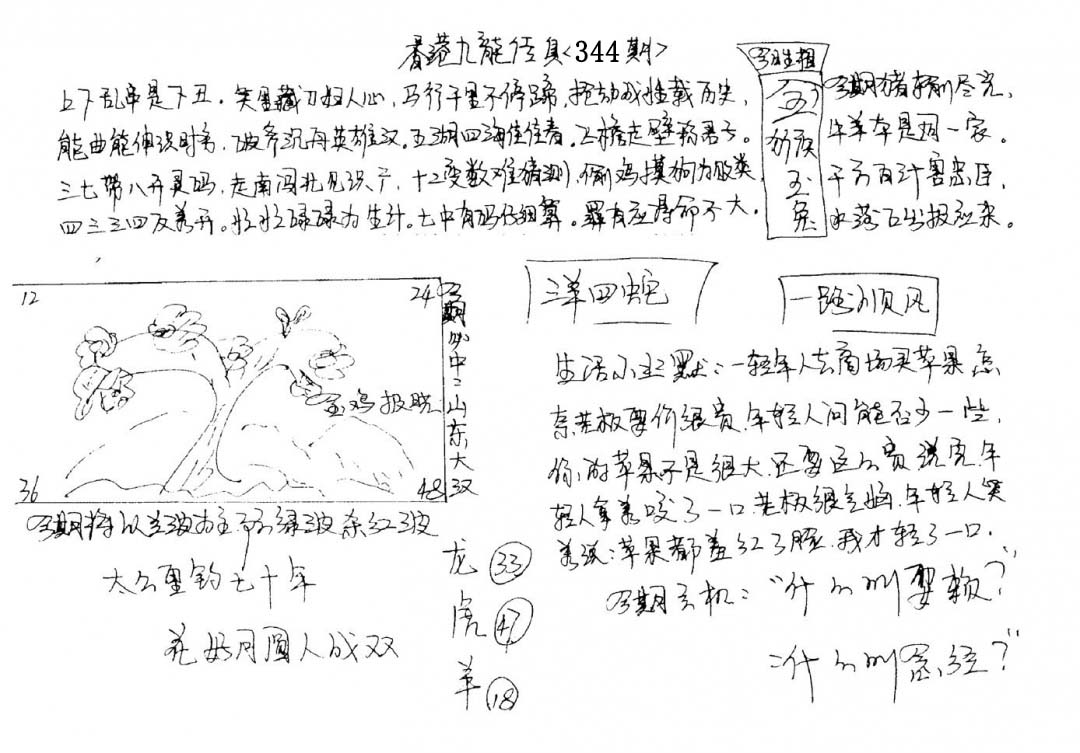 香港九龍传真<344期>
上下乱串是下丑. 笑里藏刀妇人心, 马行千里不停蹄, 挖动我挂载历史,
能曲能伸识时务, 破斧沉舟英雄汉. 五湖四海佳佳春. 飞檐走壁称君子。
三七带八开灵码, 走南闯北见识广, 十二变数难猜测, 偷鸡摸狗为败类,
四三三四反着开。忙忙碌碌为生计。七中有码仔细算。罪有应得命不大.
今期生相
玉
娇
玉
兔
今期猪转前尽完,
牛羊本是同一家。
千方百计害忠臣,
水落石出报应来。
12
24
36
48
玉鸡报晓
今期必中:山东大双
三羊四蛇
一路顺风
生活小幽默:一轻年人去商场买苹果, 怎
奈老板要价很贵. 年轻人问能否少一些,
你的苹果不是很大. 还要这么贵. 说完. 年
轻人拿着咬了一口. 老板很气恼. 年轻人笑
着说:苹果都羞红了脸. 我才轻了一口.
今期将以兰波为主 防绿波杂红波
太公垂钓七十年
花好月圆人成双
龙 33
虎 47
羊 18
今期玄机:"什么叫耍赖?"
:什么叫念经?"